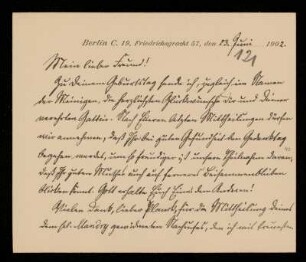 Berlin C. 19, Friedrichsgracht 57, den 23. Juni 1902.
121
Mein lieber Freund!
Zu Deinem Geburtstag sende ich, zugleich im Namen
der Meinigen, die herzlichsten Glückwünsche dir und deiner
verehrten Gattin. Nach Deinen letzten Mittheilungen dürfen
wir annehmen, daß Ihr bei guter Gesundheit den Gedenktag
begehen werdet, um so freudiger ist unsere Theilnahme daran,
daß Ihr guten Muthes auch auf fernere
blicken könnt. Gott erhalte Euch Einen dem Andern!
Vielen Dank, lieber Planck, für die Mittheilung deines
dem gewidmeten Nachrufes, den ich mit